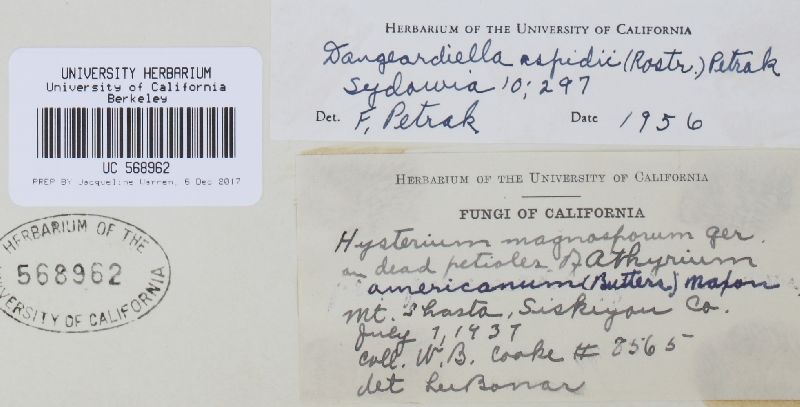 UNIVERSITY HERBARIUM
University of California
Berkeley
UC 568962
PREP BY Jacqueline Warren, 6 Dec 2017
HERBARIUM OF THE
568962
UNIVERSITY OF CALIFORNIA
HERBARIUM OF THE UNIVERSITY OF CALIFORNIA
Dangeardiella aspidii (Rostr.) Petrak
Sydowia 10; 297
Det. F. Petrak Date 1956
HERBARIUM OF THE UNIVERSITY OF CALIFORNIA
FUNGI OF CALIFORNIA
Hysterium magnosporum ger.
on dead petioles of Athyrium
americanum (Butters.) Maxon
Mt. Shasta, Siskiyou Co.
July 7, 1937
Coll. W. B. Cooke # 8565
det Lee Bonar